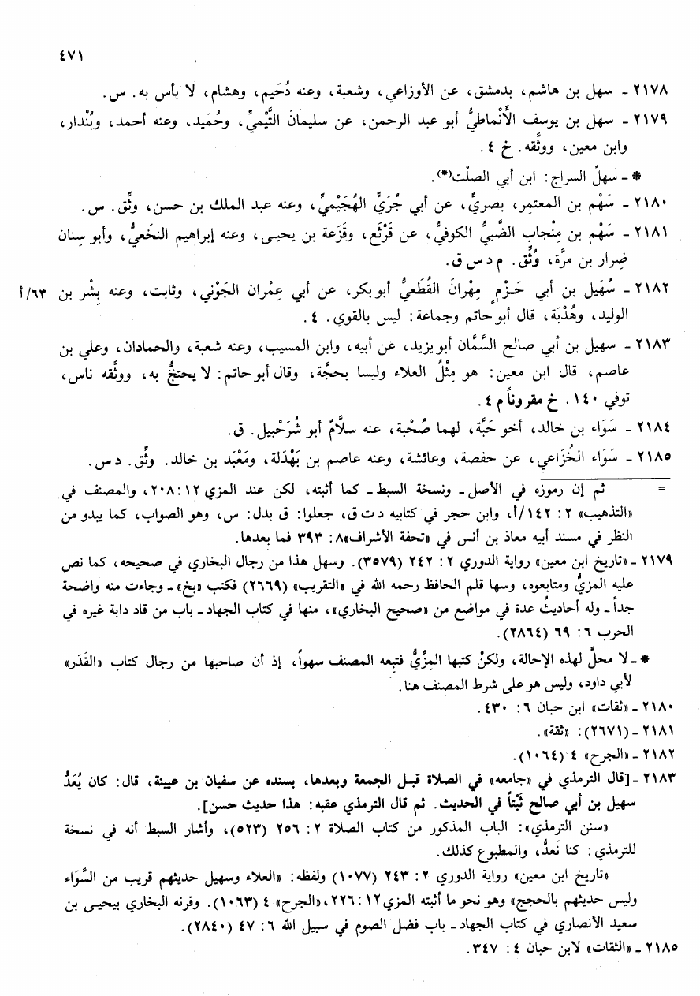 ٤٧١
٢١٧٨ ـ سهل بن هاشم، بدمشق، عن الأوزاعي، وشعبة، وعنه دُحَيم، وهشام، لا بأس به. س.
٢١٧٩ ـ سهل بن يوسف الأَنْماطيُّ أبو عبد الرحمن، عن سليمانَ التَّيْميِّ، وحُمَيد، وعنه أحمد، وبُنْدار،
وابن معين، ووثَّقه. خ ٤.
* ـ سهلٌ السراج: ابن أبي الصلْت(*).
٢١٨٠ ـ سَهْم بن المعتمِر، بصريٌّ، عن أبي جُرَيٍّ الهُجَيْميِّ، وعنه عبد الملك بن حسن، وثِّق. س.
٢١٨١ ـ سَهْم بن مِنْجاب الضَّبيُّ الكوفيُّ، عن قَرْثَع، وقَزَعة بن يحيى، وعنه إبراهيم النخَعيُّ، وأبو سِنان
ضِرار بن مرَّة، وُثِّق. م د س ق.
٢١٨٢ ـ سُهَيل بن أبي حَزْمٍ مِهْرانَ القُطَعيُّ أبوبكر، عن أبي عِمْران الجَوْني، وثابت، وعنه بِشْر بن ٦٣/أ
الوليد، وهُدْبَة، قال أبوحاتم وجماعة: ليس بالقوي. ٤.
٢١٨٣ ـ سهيل بن أبي صالح السَّمَّان أبويزيد، عن أبيه، وابن المسيب، وعنه شعبة، والحمادان، وعلي بن
عاصم، قال ابن معين: هو مِثْلُ العلاء وليسا بحجَّة، وقال أبوحاتم: لا يحتجُّ به، ووثَّقه ناس،
توفي ١٤٠. خ مقروناً م ٤.
٢١٨٤ ـ سَوَاء بن خالد، أخو حَبَّة، لهما صُحْبة، عنه سلَّامٌ أبو شُرَحْبيل. ق.
٢١٨٥ ـ سَوَاء الخُزَاعي، عن حفصة، وعائشة، وعنه عاصم بن بَهْدَلة، ومَعْبَد بن خالد. وثِّق. د س.
= ثم إن رموزه في الأصل ـ ونسخة السبط ـ كما أثبته، لكن عند المزي ١٢: ٢٠٨، والمصنف في
«التذهيب» ٢: ١٤٢/أ، وابن حجر في كتابيه د ت ق، جعلوا: ق بدل: س، وهو الصواب، كما يبدو من
النظر في مسند أبيه معاذ بن أنس في «تحفة الأشراف» ٨: ٣٩٣ فما بعدها.
٢١٧٩ ـ «تاريخ ابن معين» رواية الدوري ٢: ٢٤٢ (٣٥٧٩). وسهل هذا من رجال البخاري في صحيحه، كما نص
عليه المزيُّ ومتابعوه، وسها قلم الحافظ رحمه الله في «التقريب» (٢٦٦٩) فكتب «بخ» ـ وجاءت منه واضحة
جداً ـ وله أحاديثُ عدة في مواضع من «صحيح البخاري»، منها في كتاب الجهاد ـ باب من قاد دابة غيره في
الحرب ٦: ٦٩ (٢٨٦٤).
* ـ لا محلَّ لهذه الإحالة، ولكنْ كتبها المِزِّيُّ فتبعه المصنف سهواً، إذ أن صاحبها من رجال كتاب «القَدَر»
لأبي داود، وليس هو على شرط المصنف هنا.
٢١٨٠ ـ «ثقات» ابن حبان ٦: ٤٣٠.
٢١٨١ ـ (٢٦٧١): «ثقة».
٢١٨٢ ـ «الجرح» ٤ (١٠٦٤).
٢١٨٣ ـ [قال الترمذي في «جامعه» في الصلاة قبل الجمعة وبعدها، بسنده عن سفيان بن عيينة، قال: كان يُعَدُّ
سهيل بن أبي صالح ثَبْتاً في الحديث. ثم قال الترمذي عقبه: هذا حديث حسن].
«سنن الترمذي»: الباب المذكور من كتاب الصلاة ٢: ٢٥٦ (٥٢٣)، وأشار السبط أنه في نسخة
للترمذي: كنا نَعدُّ، والمطبوع كذلك.
«تاريخ ابن معين» رواية الدوري ٢: ٢٤٣ (١٠٧٧) ولفظه: «العلاء وسهيل حديثهم قريب من السَّواء
وليس حديثهم بالحجج» وهو نحو ما أثبته المزي ١٢: ٢٢٦، «الجرح» ٤ (١٠٦٣). وقرنه البخاري بيحيى بن
سعيد الأنصاري في كتاب الجهاد ـ باب فضل الصوم في سبيل الله ٦: ٤٧ (٢٨٤٠).
٢١٨٥ ـ «الثقات» لابن حبان ٤: ٣٤٧.